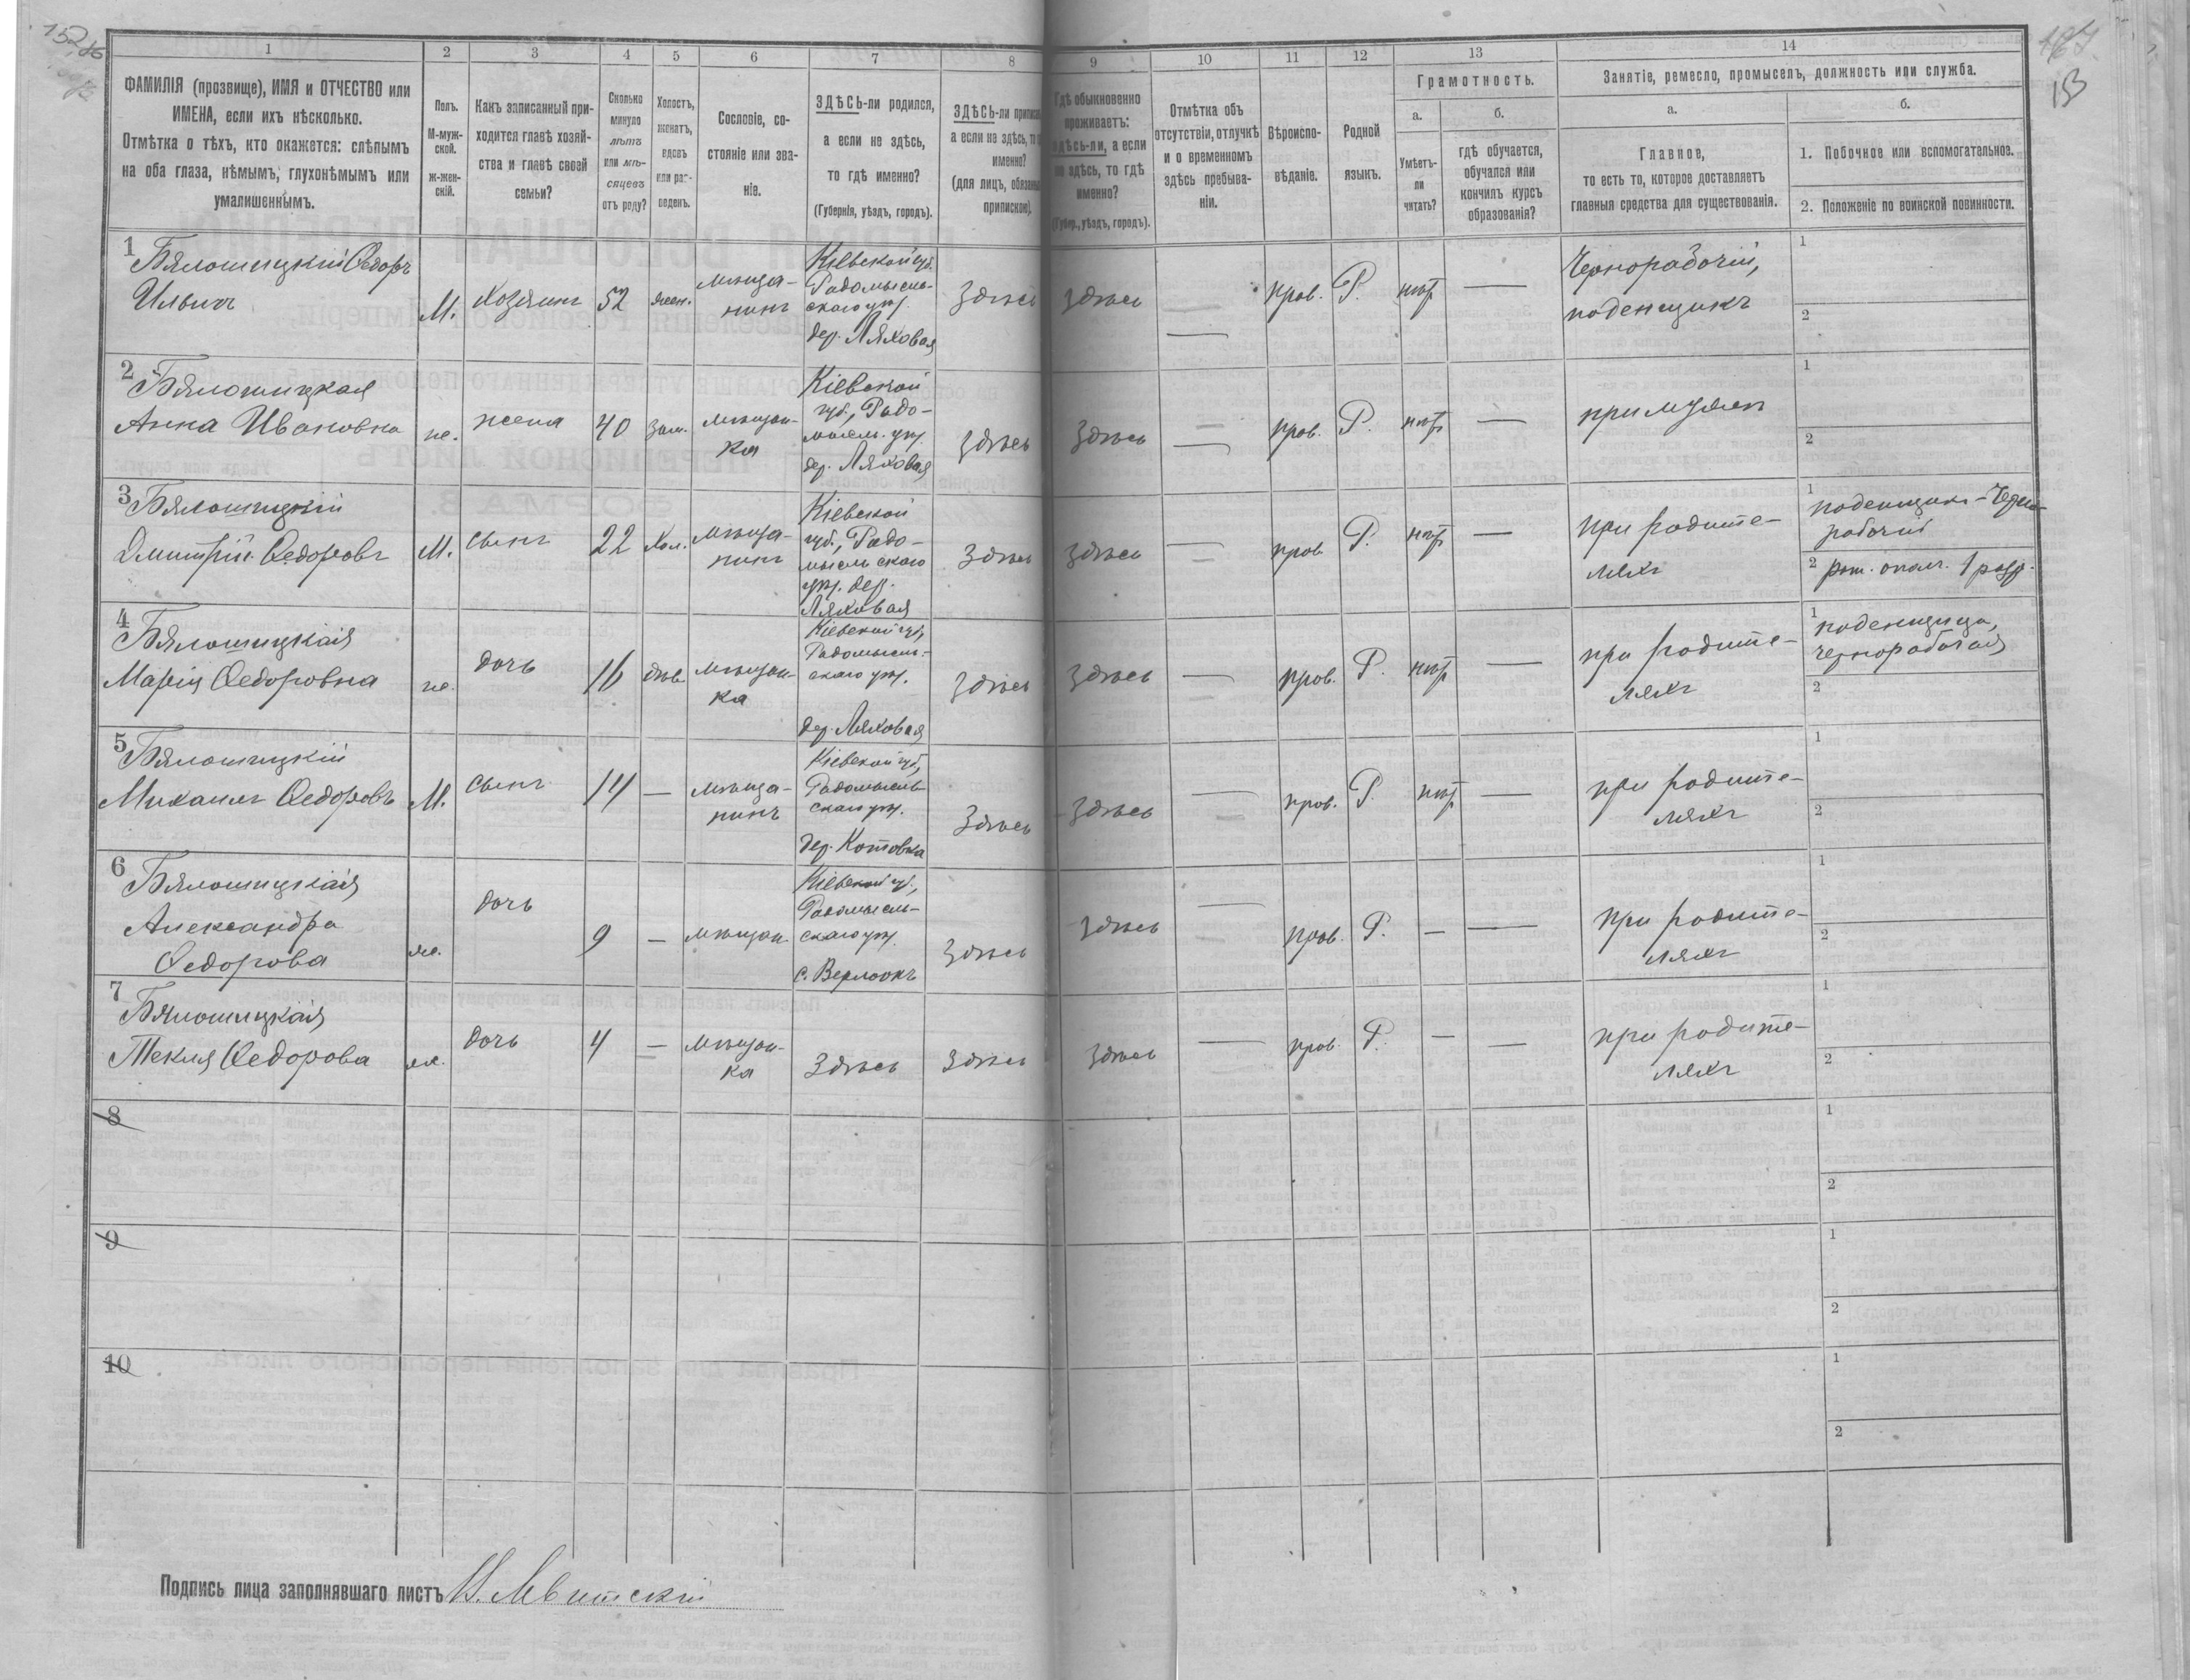 1 2 3 4 5 6 7 8 9 10 11 12 13 14
ФАМИЛІЯ (прозвище), ИМЯ и ОТЧЕСТВО или
ИМЕНА, если ихъ нѣсколько.
Отмѣтка о тѣхъ, кто окажется: слѣпымъ
на оба глаза, нѣмымъ, глухонѣмымъ или
умалишеннымъ.
Полъ.
М-муж-
ской.
ж-жен-
скій.
Какъ записанный при-
ходится главѣ хозяй-
ства и главѣ своей
семьи?
Сколько
минуло
лѣтъ
или мѣ-
сяцевъ
отъ роду?
Холостъ,
женатъ,
вдовъ
или раз-
веденъ.
Сословіе, со-
стояніе или зва-
ніе.
ЗДѢСЬ-ли родился,
а если не здѣсь,
то гдѣ именно?
(Губернія, уѣздъ, городъ).
ЗДѢСЬ-ли
а если не здѣсь,
именно?
(для лицъ,
припискою).
Гдѣ обыкновенно
проживаетъ:
здѣсь-ли, а если
не здѣсь, то гдѣ
именно?
(Губер., уѣздъ, городъ).
Отмѣтка объ
отсутствіи, отлучкѣ
и о временномъ
здѣсь пребыва-
ніи.
Вѣроиспо-
вѣданіе.
Родной
языкъ.
Грамотность.
а.
Умѣетъ-
ли
читать?
б.
гдѣ обучается,
обучался или
кончилъ курсъ
образованія?
Занятіе, ремесло, промыселъ, должность или служба.
а.
Главное,
то есть то, которое доставляетъ
главныя средства для существованія.
б.
1. Побочное или вспомогательное.
2. Положеніе по воинской повинности.
1
Бялошицкій Ѳедоръ
Ильичъ
М.
Хозяинъ
52
жен.
мѣща-
нинъ
Кіевской губ.
Радомысль-
скаго уѣз.
дер. Ляховая
Здѣсь
Здѣсь
—
прав.
Р.
нѣт
—
Чернорабочій,
поденщикъ
1
2
2
Бялошицкая
Анна Ивановна
же.
жена
40
зам.
мѣщан-
ка
Кіевской
губ., Радо-
мысль. уѣз.
дер. Ляховая
Здѣсь
Здѣсь
—
прав.
Р.
нѣт
—
при мужѣ
1
2
3
Бялошицкій
Дмитрій Ѳедоровъ
М.
сынъ
22
Хол.
мѣща-
нинъ
Кіевской
губ., Радо-
мысльскаго
уѣз. дер.
Ляховая
Здѣсь
Здѣсь
—
прав.
Р.
нѣт
—
при родите-
ляхъ
1
поденщикъ - Черно-
рабочій
2 рат. ополч. 1 разр.
4
Бялошицкая
Марія Ѳедоровна
же.
дочь
16
дѣв.
мѣщан-
ка
Кіевской губ.,
Радомысль-
скаго уѣз.
дер. Ляховая
Здѣсь
Здѣсь
—
прав.
Р.
нѣт
—
при родите-
ляхъ
1
поденщица,
чернорабочая
2
5
Бялошицкій
Михаилъ Ѳедоровъ
М.
сынъ
14
—
мѣща-
нинъ
Кіевской губ.,
Радомысль-
скаго уѣз.
дер. Котовка
Здѣсь
Здѣсь
—
прав.
Р.
нѣт
—
при родите-
ляхъ
1
2
6
Бялошицкая
Александра
Ѳедорова
же.
дочь
9
—
мѣщан
Кіевской губ.,
Радомысль-
скаго уѣз.
с. Верлоокъ
Здѣсь
Здѣсь
—
прав.
Р.
—
—
при родите-
ляхъ
1
2
7
Бялошицкая
Текля Ѳедорова
же.
дочь
4
—
мѣщан-
ка
Здѣсь
Здѣсь
Здѣсь
—
прав.
Р.
—
—
при родите-
ляхъ
1
2
8
1
2
9
1
2
10
1
2
Подпись лица заполнявшаго листъ